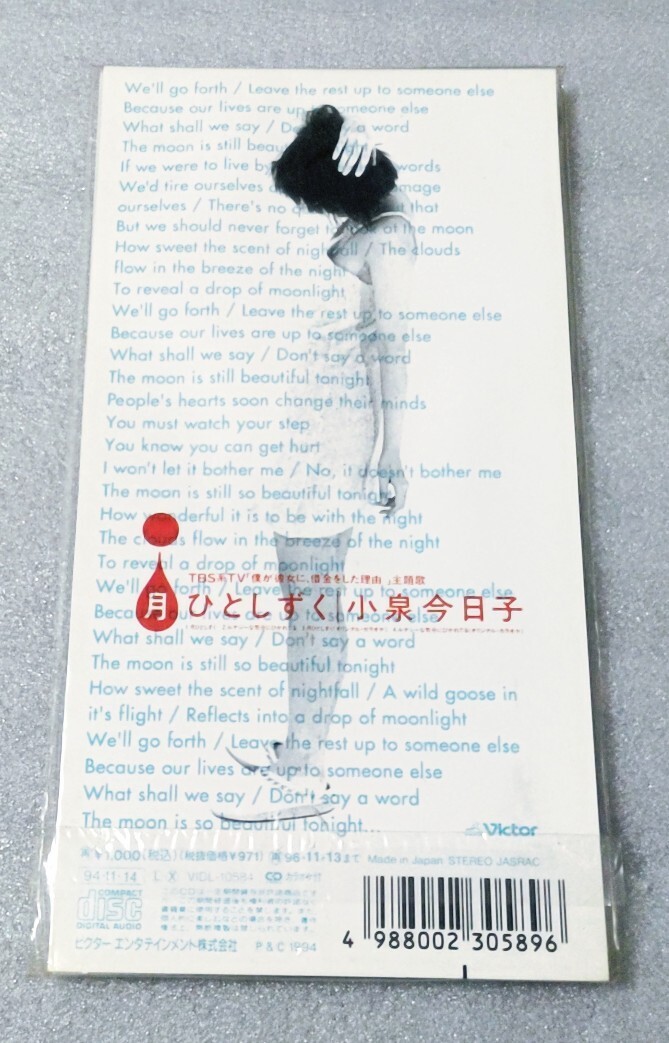 We'll go forth / Leave the rest up to someone else
Because our lives are up to someone else
What shall we say / Don't say a word
The moon is still beautiful
If we were to live by words
We'd tire ourselves
ourselves / There's no that
But we should never forget to look at the moon
How sweet the scent of nightfall / The clouds
flow in the breeze of the night
To reveal a drop of moonlight
We'll go forth / Leave the rest up to someone else
Because our lives are up to someone else
What shall we say / Don't say a word
The moon is still beautiful tonight
People's hearts soon change their minds
You must watch your step
You know you can get hurt
I won't let it bother me / No, it doesn't bother me
The moon is still so beautiful tonight
How wonderful it is to be with the night
The clouds flow in the breeze of the night
To reveal a drop of moonlight
TBS系TV「僕が彼女に、借金をした理由」主題歌
We'll go forth / Leave the rest up to someone else
月ひとしずく 小泉今日子
Because our lives are up to someone else
What shall we say / Don't say a word
The moon is still so beautiful tonight
How sweet the scent of nightfall / A wild goose in
it's flight / Reflects into a drop of moonlight
We'll go forth / Leave the rest up to someone else
Because our lives are up to someone else
What shall we say / Don't say a word
The moon is so beautiful tonight...
Victor
¥1,000(税込)(税抜価格¥971) 96・11・13まで Made in Japan STEREO JASRAC
94・11・14 L X VIDL-10584 カラオケ付
COMPACT
disc
DIGITAL AUDIO
ビクター エンタテインメント株式会社 P & C 1994
4 988002 305896